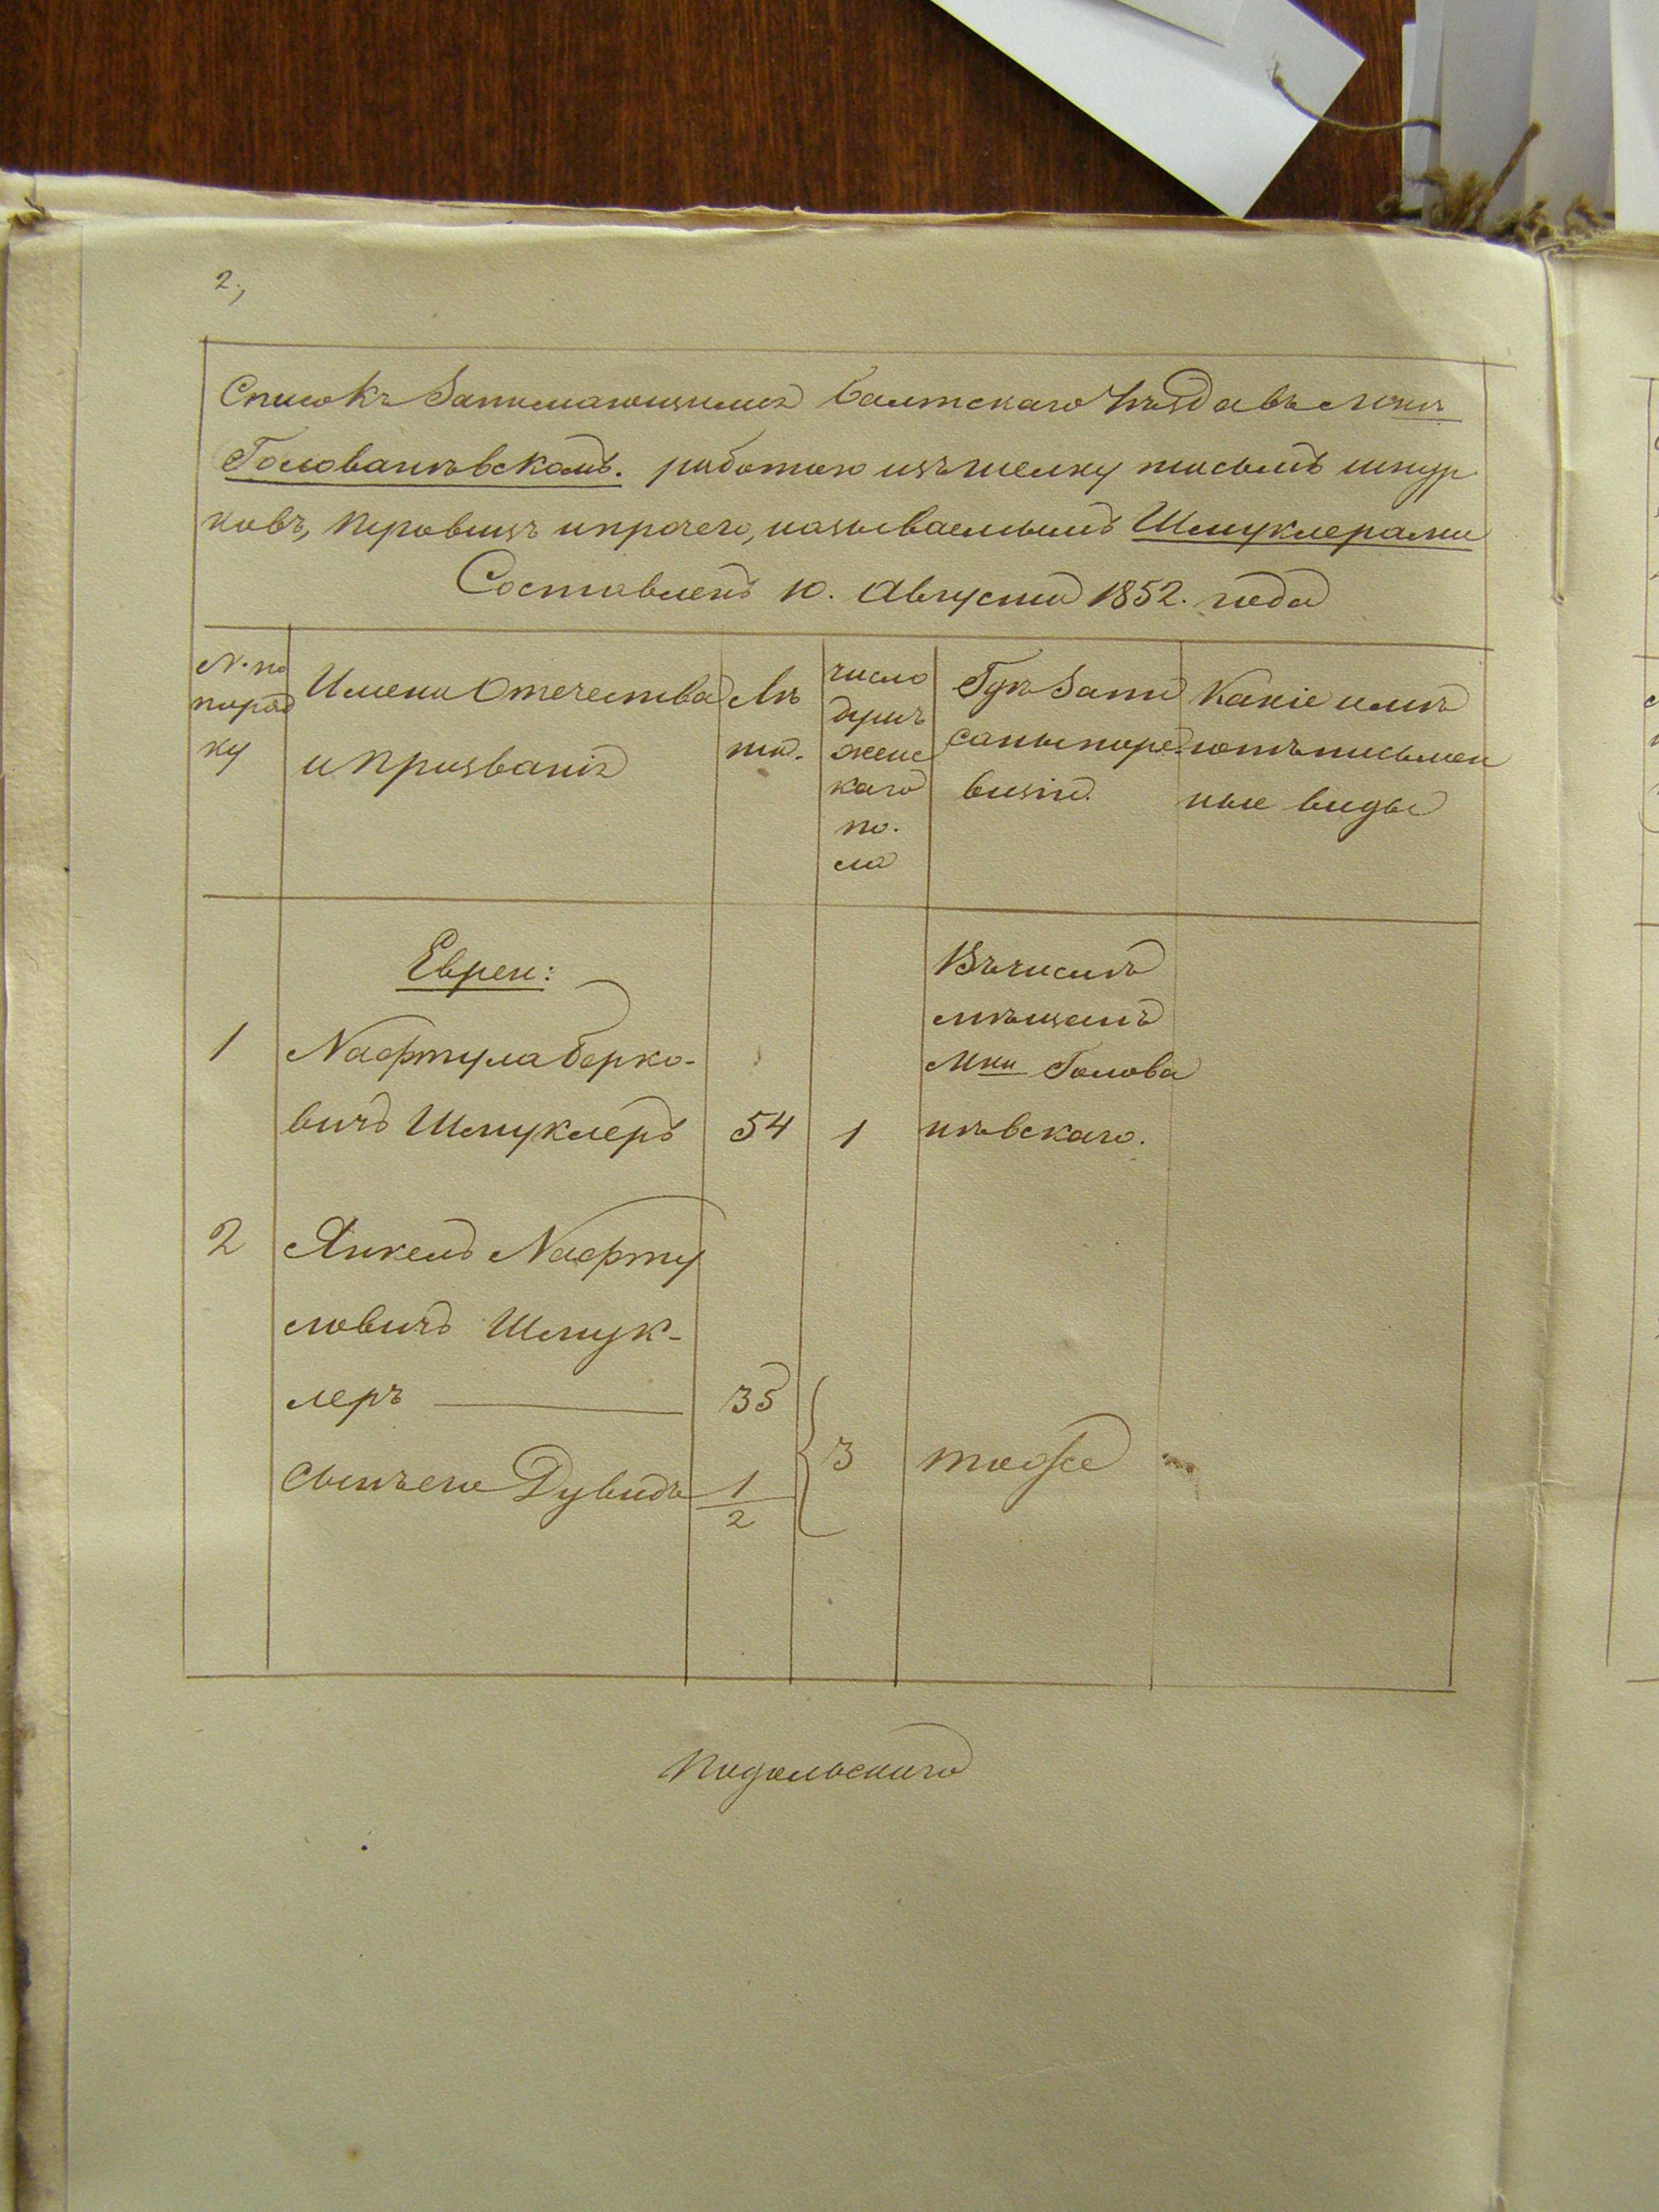 2,
Списокъ Занимающимся Балтскаго Уѣзда въ Мчкѣ
Голованѣвскомъ. работою изъ шелку тасьмъ шнур
ковъ, перовицъ и прочего, называемымъ Шмуклерами
Составленъ 10. Августа 1852. года
N. по
поряд
ку
Имена Отечества
и Призванія
Лѣ
та.
число
душъ
женс
каго
по.
ла
Гдѣ Запи
саны по ре
визіи.
Какіе имѣ
ютъ письмен
ные виды
Евреи:
1
Нафтула Берко-
вичъ Шмуклеръ
54
1
Въ числѣ
мѣщанъ
Мчи Голова
нѣвскаго.
2
Янкель Нафту
ловичъ Шмук-
леръ
35
сынъ его Дувидъ
1/2
3
тоже
Подольскаго